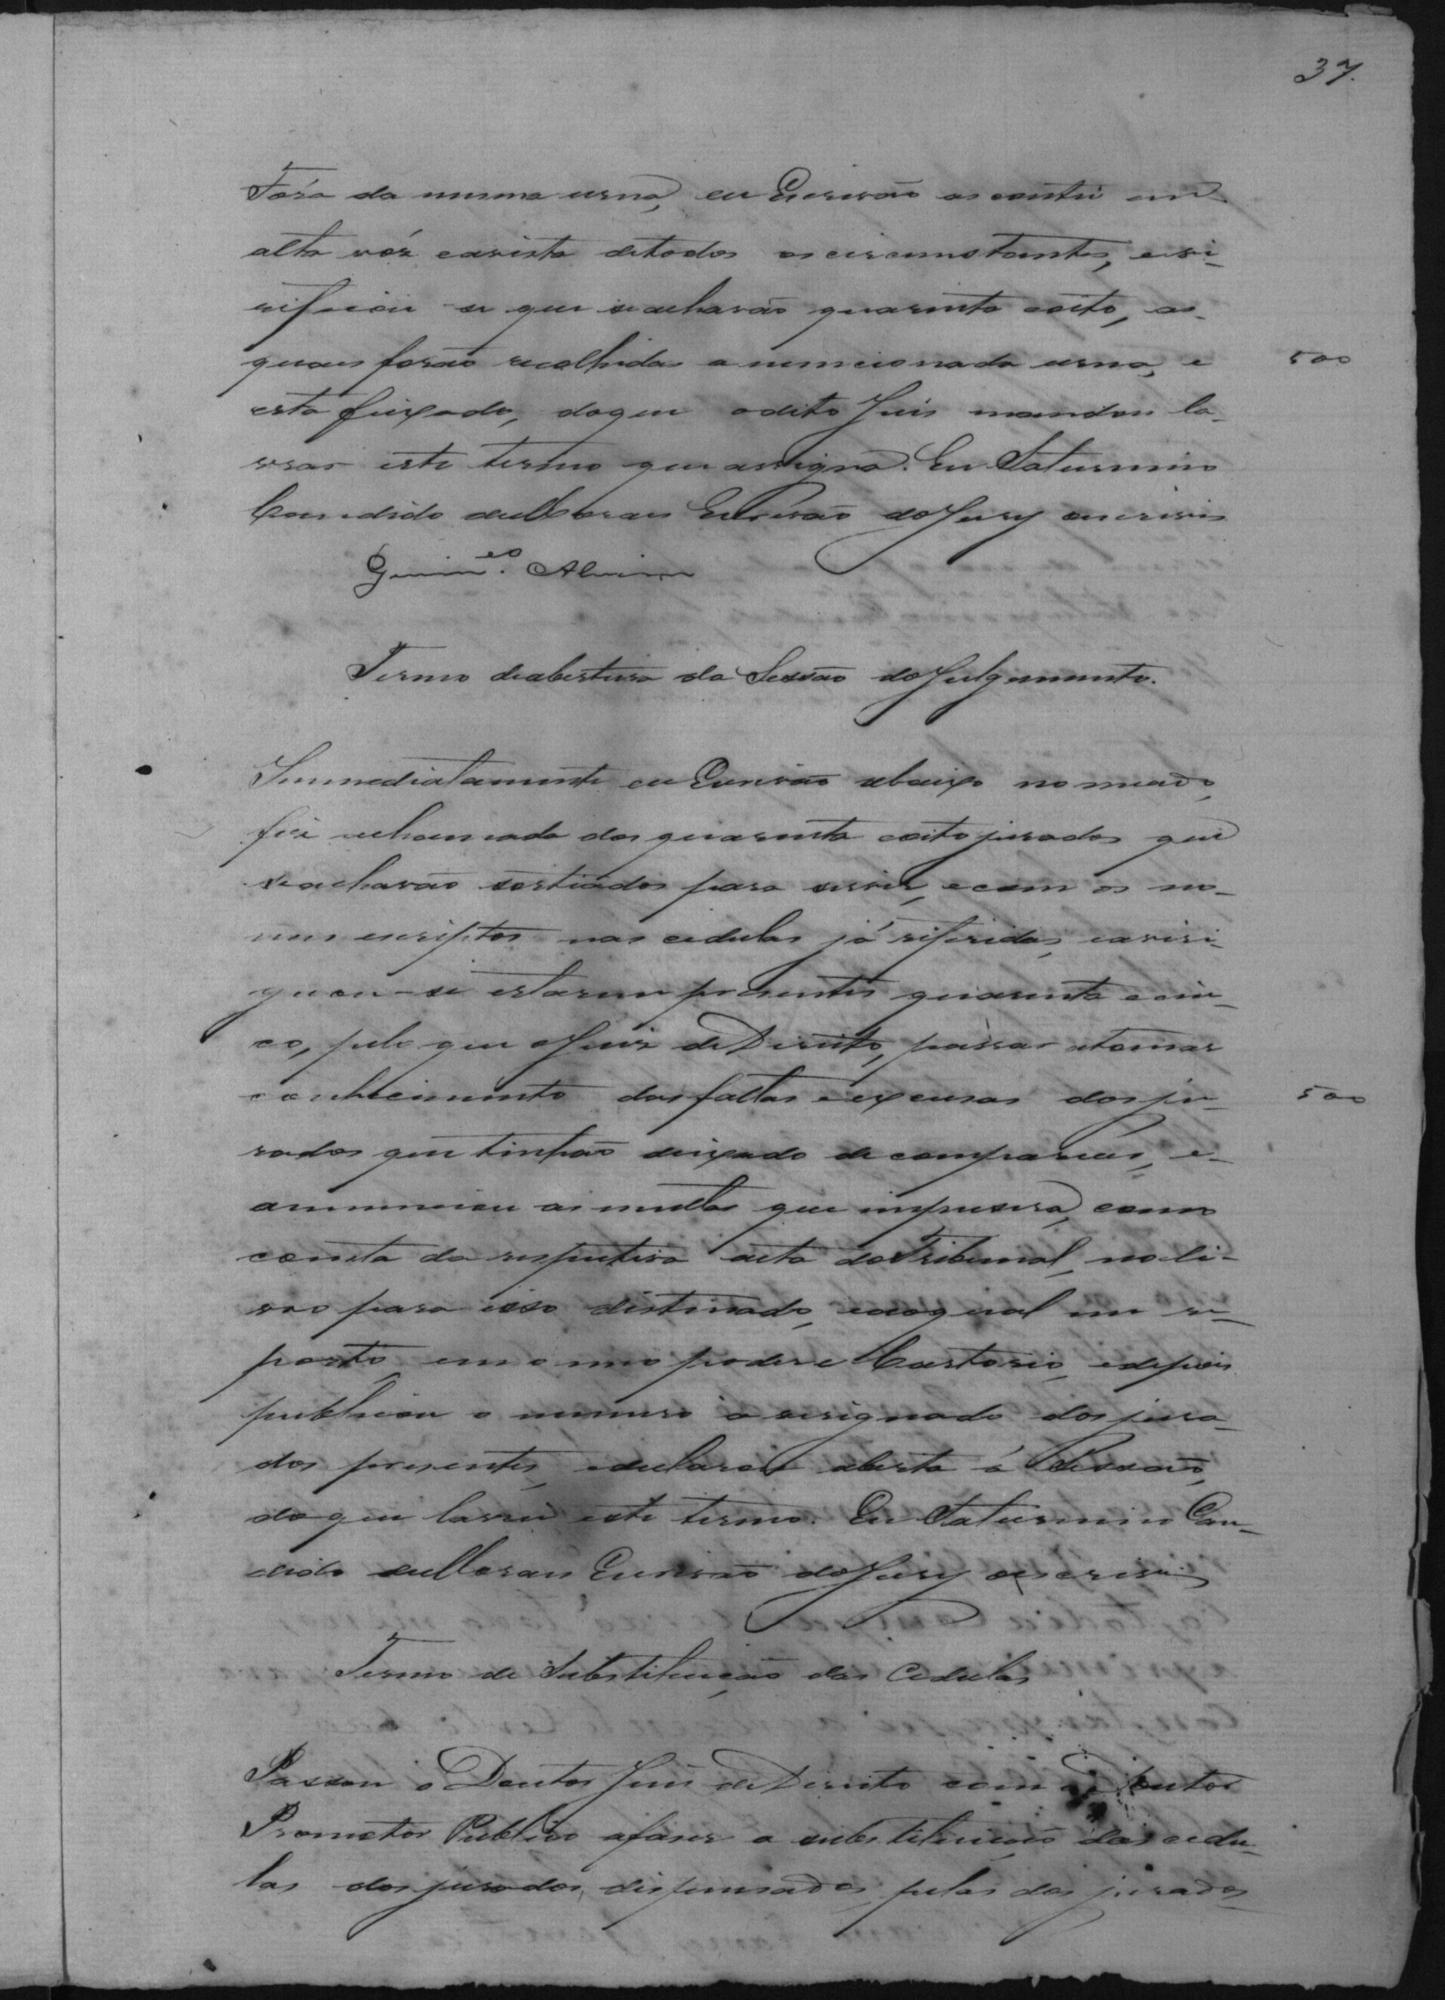 37.
Fóra da mesma urna, eu Escrivão as contei em
alta vóz eavista detodos os circumstantes, eve-
rificou se que seachavão quarenta eoito, as
quaes forão recolhidas a mencionada urna, e
500
esta feixada, doque odito Juis mandou la-
vrar este termo que assigna. Eu Saturnino
Candido deMoraes Escrivão doJury oescrivi
Termo deabertura da Sessão doJulgamento.
Immediatamente eu Escrivão abaixo nomeado,
fiz achamada dos quarenta eoito jurados que
seachavão sortiados para servir, ecom os no-
mes escriptos nas cedulas já referidas, eaviri-
guou-se estarem presentes quarenta ecin-
co, pelo que oJuiz deDireito, passou atomar
conhecimento dasfaltas eexcusas dosju-
500
rados que tinhão deixado decomparecer, e
annunciou as multas que impusera, como
consta da respectiva acta doTribunal, noli-
vro para isso distinado, eaoqual me re-
porto, em omeo poder e Cartorio, edepois
publicou o numero o designado dos jura-
dos presentes, edeclarou aberta a Sessão,
doque lavrei este termo. Eu Saturnino Can-
dido deMoraes Escrivão doJury oescrivi
Termo de Substituição das Cedulas
Passou o Doutor Juis deDireito com o Doutor
Promotor Publico afaser a substituição das cedu-
las dos jurados, dispensados, pelas dos jurados